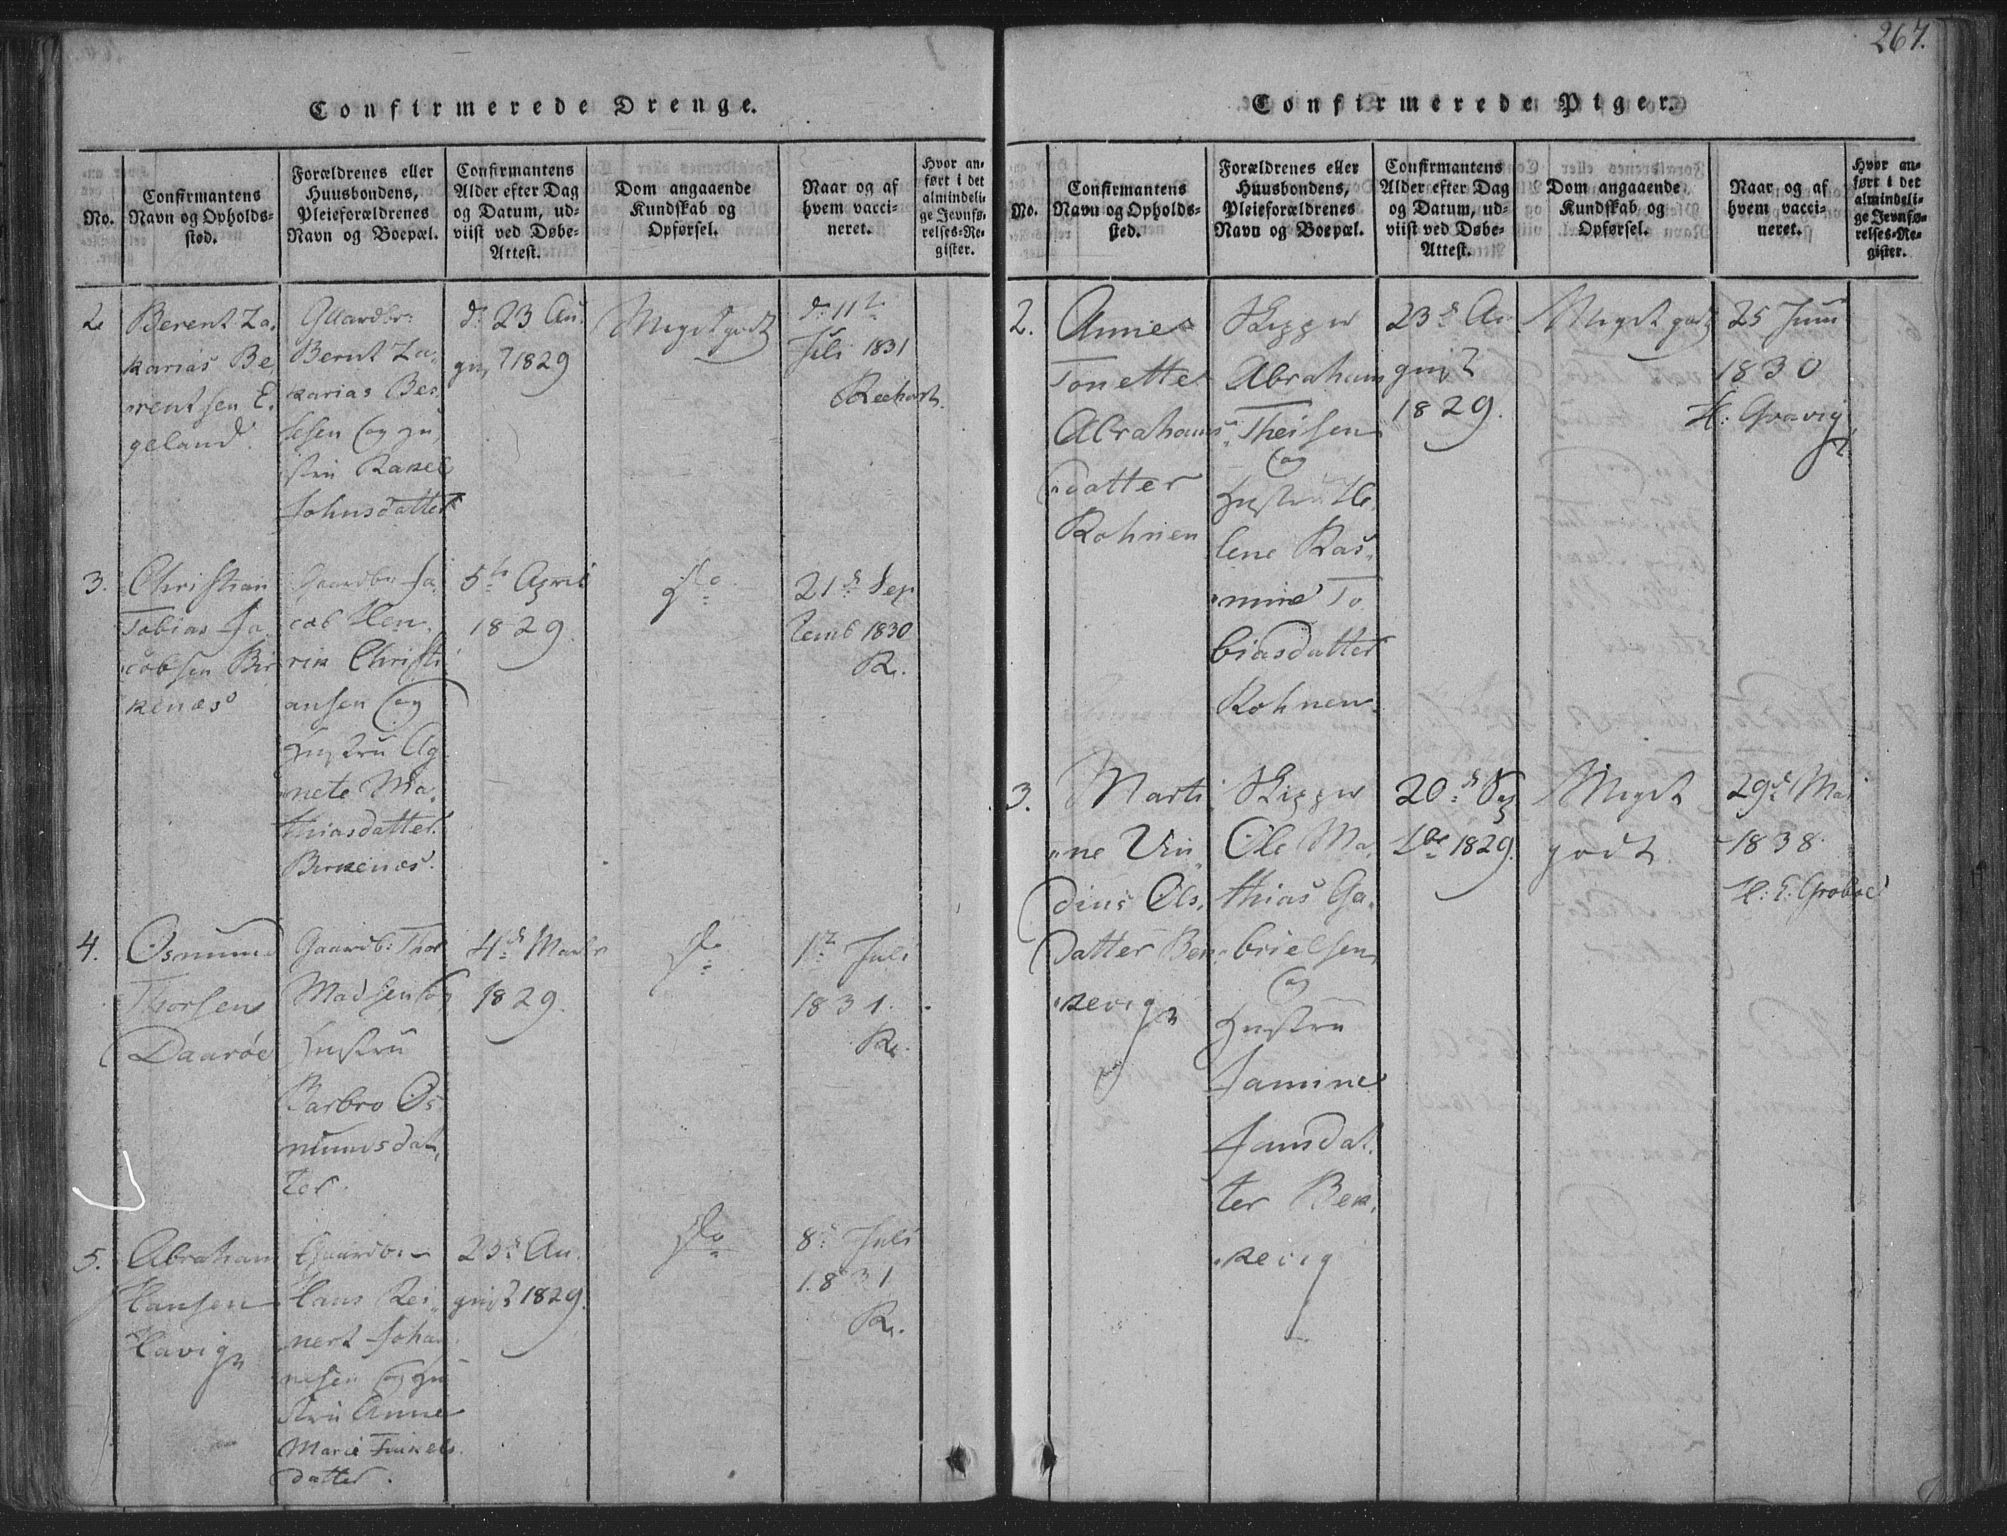 267.
Confirmerede Drenge.
No.
Confirmantens
Navn og Opholds-
sted.
Forældrenes eller
Huusbondens,
Pleieforældrenes
Navn og Boepæl.
Confirmantens
Alder efter Dag
og Datum, ud-
viist ved Døbe-
Attest.
Dom angaaende
Kundskab og
Opførsel.
Naar og af
hvem vacci-
neret.
Hvor an-
ført i det
almindeli-
ge Jevnfø-
relses-Re-
gister.
2
Berent Za-
karias Be,
rentsen E.
geland.
Gaardbr:
Bernt Za-
karias Ber
og Hu,
stru Rakel
Johnsdatter
d: 23 Au.
gust 1829
Meget godt
d: 11te
Juli 1831
3.
Christian
Tobias Ja
cobsen Bir
kenæs
Gaardbr Ja
cob Hen,
rik Christi
ansen og
Hustru Ag
nete Ma,
thiasdatter
Birkenæs.
5te April
1829.
do
21d Sep
temb 1830
R.
4.
Osmund
Thorsen
Daarøe
Gaardb: Thor
Madsen og
Hustru
Barbro Os
munnsdat,
ter.
4d Marts
1829.
do
1te Juli
1831.
R.
5.
Abraham
Hansen
Havig
Gaardb:
Hans Rei
nert Joha
nesen og Hu
stru Anne
Marie
datter.
23d Au.
gust 1829.
do
8d Juli
1831
R.
Confirmerede Piger.
No.
Confirmantens
Navn og Opholds-
sted.
Forældrenes eller
Huusbondens,
Pleieforældrenes
Navn og Boepæl.
Confirmantens
Alder efter Dag
og Datum, ud-
viist ved Døbe-
Attest.
Dom angaaende
Kundskab og
Opførsel.
Naar og af
hvem vacci-
neret.
Hvor an-
ført i det
almindeli-
ge Jevnfø-
relses-Re-
gister.
2.
Anne
Tonette
Abrahams
datter
Rohnen
Skipper
Abraham
Theisen
og
Hustru He
lene Ras,
mine To
biasdatter
Rohnen
23d Au
gust
1829.
Meget godt
25 Juni
1830
H: Gravig
3.
Marti
ne Vin
dine Ols,
datter Ben
kevig
Skipper
Ole Ma,
thias Ga,
brielsen
og
Hustru
Jamine
Jansdat
ter Ben,
kevig
20d Sep
tbr 1829.
Meget
godt
29d Mai
1838.
H: E: Groboe